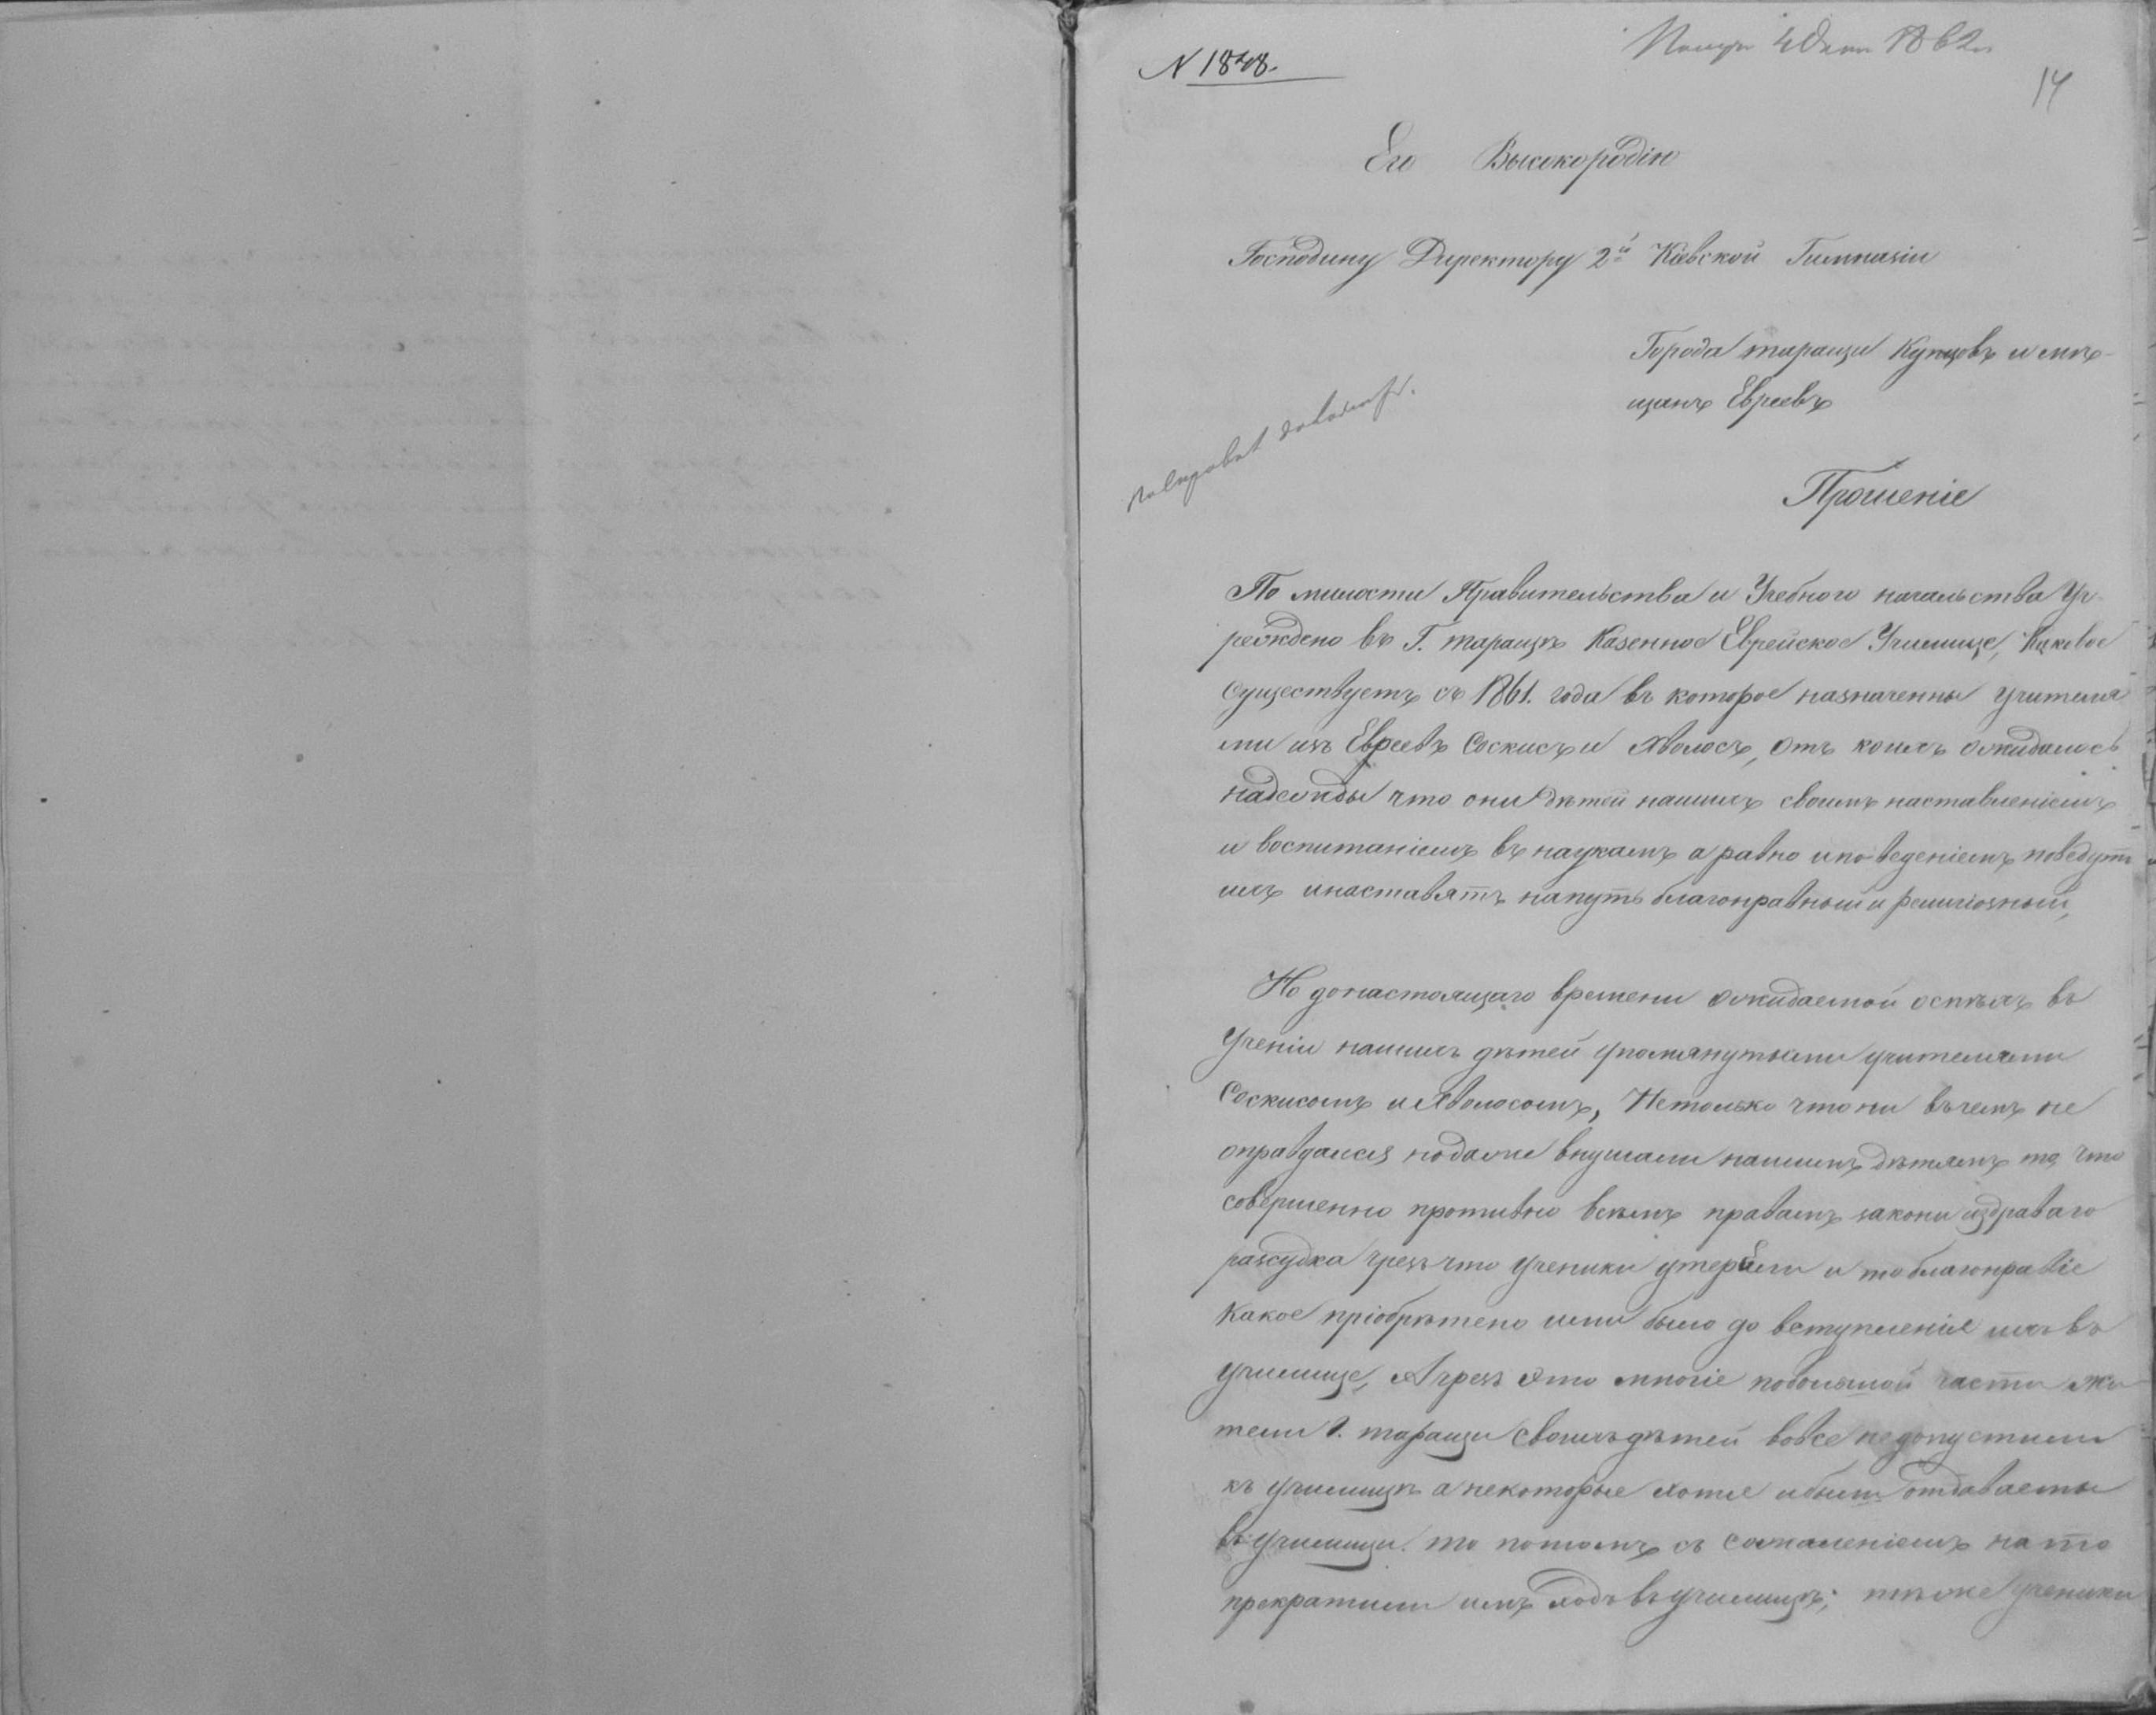 N 1848.
1862
14
Его Высокородію
Господину Директору 2й Кіевской Гимназіи
Города таращи Купцовъ и мѣ-
щанъ Евреевъ
Прошеніе
По милости Правительства и Учебного начальства Уч-
реждено въ Г. таращѣ Казенное Еврейское Училище, каковое
существуетъ съ 1861. года въ которое назначенны учителя
ми изъ Евреевъ Соскисъ и Яволосъ, отъ коихъ ожидалось
надежды что они дѣтей нашихъ своимъ наставленіемъ
и воспитаніемъ въ наукамъ а равно и поведеніемъ поведутъ
ихъ и наставятъ на путь благонравный и религіозный,
Но до настоящаго времени ожидаемой оспѣхъ въ
Ученіи нашихъ дѣтей упомянутыми учителями
Соскисомъ и Яволосомъ, Нетолько что ни въ чемъ не
оправдался но даже внушали нашимъ дѣтямъ то, что
совершенно противно всѣмъ правамъ закони и здраваго
разсудка чрезъ что Ученики утеряли и то благонравіе
Какое пріобрѣтено ими было до вступленія ихъ въ
училище, А чрезъ это многіе по большой части жи-
тели г. таращи своихъ дѣтей вовсе не допустили
къ училищѣ а некоторые хотя и были отдаваемы
въ училищи то потомъ съ сожаленіемъ на то
прекратили имъ ходъ въ училищѣ; тѣ же Ученики